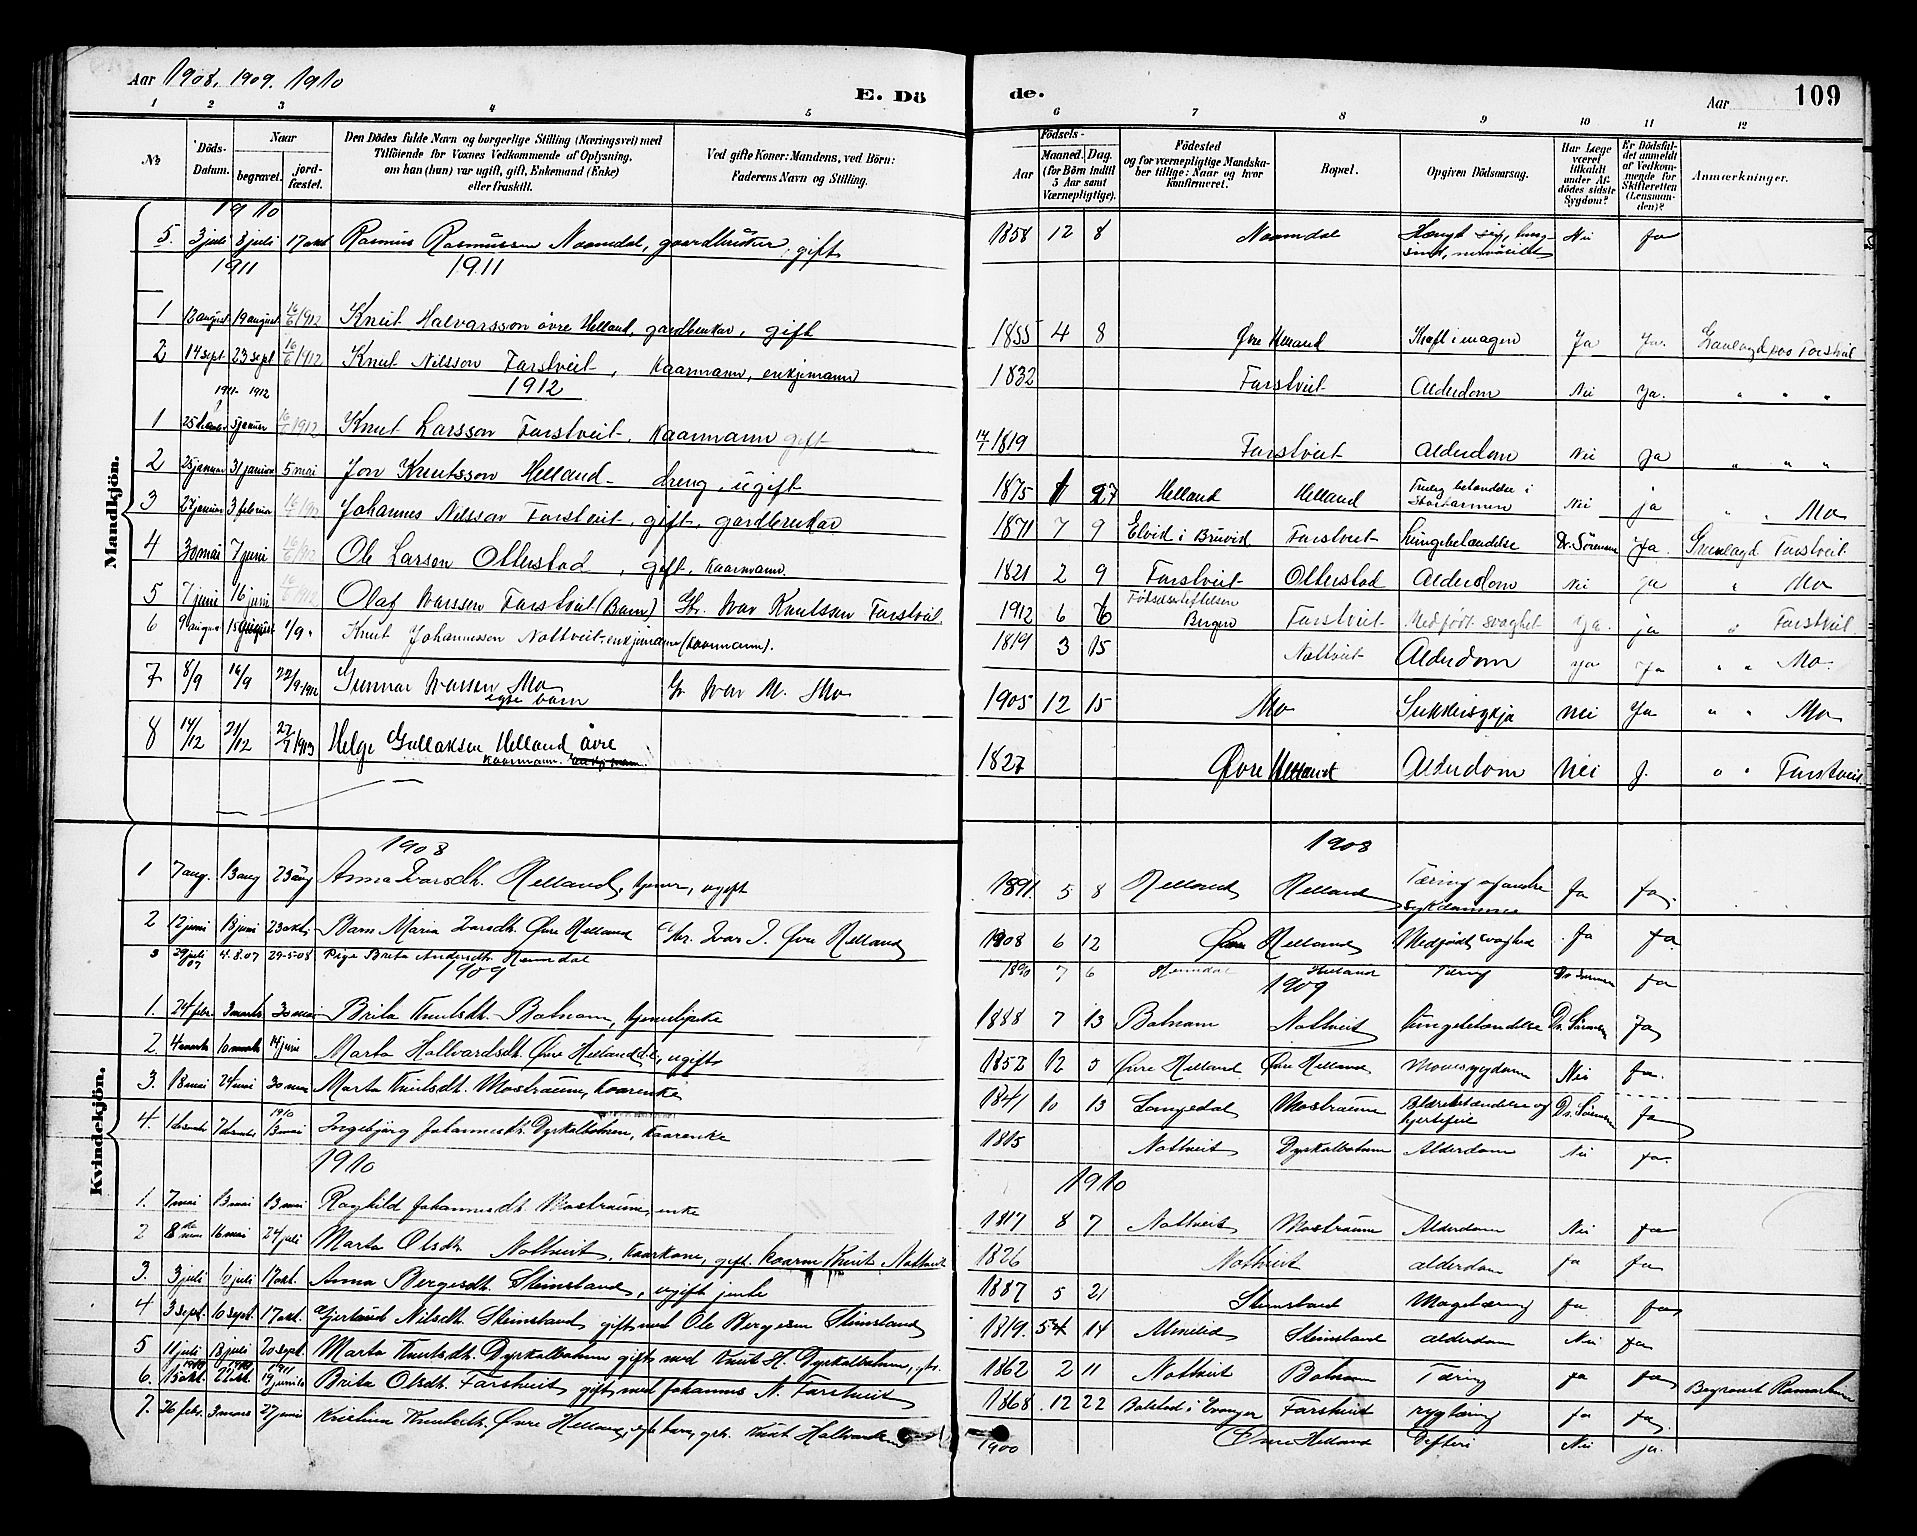 Aar 1908, 1909. 1910
E. Dö
de.
Aar
109
1 2 3 4 5 6 7 8 9 10 11 12
No
Döds-Datum.
Naar
begravet.
jord-fæstet.
Den Dödes fulde Navn og borgerlige Stilling (Næringsvei) med
Tilföiende for Voxnes Vedkommende af Oplysning,
om han (hun) var ugift, gift, Enkemand (Enke)
eller fraskilt.
Ved gifte Koner: Mandens, ved Börn:
Faderens Navn og Stilling.
Födsels-
Aar
Maaned.
Dag.
(for Börn indtil 5 Aar samt Værnepligtige).
Födested
og for værnepligtige Mandskaber tillige: Naar og hvor konfirmeret.
Bopæl.
Opgiven Dödsaarsag.
Har Læge været tilkaldt under Afdödes sidste Sygdom?
Er Dödsfaldet anmeldt af Vedkommende for Skifteretten (Lensmanden)?
Anmærkninger.
Mandkjön.
1910
5. 3 juli 8 juli 17 okt Rasmus Rasmussen Naamdal, gaardbruker, gift 1858 12 8 Naamdal Hængt sig, nervösitet Nei Ja
1911 1911
1 12 august 19 august 16/6 1912 Knut Halvarsson övre Helland, gardbrukar, gift 1855 4 8 Övre Helland Kræft i magen Ja Ja. Gravlagd paa Farstveit
2 14 sept 23 sept 16/6 1912 Knut Nilsson Farstveit, Kaarmann, enkjemann 1832 Farstveit Alderdom Nei Ja. " " "
1911 1912 1912
1 5 januar 16/6 1912 Knut Larsson Farstveit, Kaarmann gift 1819 Farstveit Alderdom Nei Ja " " "
2 25 januar 31 januar 5 mai Jon Knutsson Helland - dreng, ugift 1875 1 27 Helland Helland Nei ja " " Mo
3 27 januar 3 februar Johannes Nilsson Farstveit, gift, gardbrukar 1871 7 9 Elvid i Bruvid Farstveit Lungebetændelse Dr. Sörensen Ja. Gravlagd Farstveit
4 30 mai 7 juni 16/6 1912 Ole Larsen Otterstad, gift, Kaarmann. 1821 2 9 Farstveit Otterstad Alderdom Nei Ja " Mo
5 7 juni 16 juni 16/6 1912 Olaf Ivarssen Farstveit (Barn) Gbr. Ivar Knutssen Farstveit 1912 6 6 Födselsstiftelsen Bergen Farstveit Medfödt svaghet Ja. ja " Farstveit
6 9 august 15 august 1/9 Knut Johannessen Nottveit - enkjemann (Kaarmann). 1819 3 15 Nottveit Alderdom ja Ja " " Mo.
7 8/9 16/9 22/9 1912 Gunnar Ivarssen Mo egte barn Gbr Ivar M. Mo 1905 12 15 Mo Sukkersykja Nei Ja " " Mo
8 14/12 21/12 27/7 1913 Helge Gullaksen Helland övre Kaarmann. 1827 Övre Helland Alderdom Nei J. " " Farstveit
Kvindekjön.
1908 1908
1 7 aug. 13 aug 23 aug Anna Ivarsdtr. Helland, ugift 1891 5 8 Helland Helland Tæring og andre sykdommer Ja Ja.
2 12 juni 18 juni 23 okt Barn Maria Ivarsdtr. Övre Helland Gbr. Ivar J. Övre Helland 1908 6 12 Övre Helland Medfödt svaghed Ja Ja
3 29 juli 07 4.8.07 29-5-08 Pige Brita Andersdtr. Hemdal 1890 7 6 Hemdal Helland Tæring Dr Sörensen Ja
1909 1909
1. 24 febr. 3 marts 30 mai Brita Knutsdtr. Botnam, tjenestpike 1888 7 13 Botnam Nottveit Lungebetændelse Dr. Sörensen Ja
2. 4 marts 10 marts 14 juni Marta Hallvardsdtr. Övre Helland, ugift 1852 12 5 Övre Helland Övre Helland Mavesygdom Nei Ja.
3. 18 mai 24 mai 30 mai Marta Knutsdtr. Mostraum, Kaarenke 1841 10 13 Langedal Mostraum Blærebetændelse og hjertefeil Dr. Sörensen Ja
4. 1 desemb 7 desemb 1910 13 mai Ingebjörg Johannesdtr. Dyrkalbotnen, Kaarenke 1815 Nottveit Dyrkolbotnen Alderdom Nei Ja.
1910 1910
1. 7 mai 13 mai 13 mai Ragnhild Johannesdtr. Mostraum, enke 1817 8 7 Nottveit Mostraum Alderdom Nei Ja
2 8de mai 16 mai 24 juli Marta Olsdtr. Nottveit, Kaarkone, gift. Kaarm Knut Nottveit 1826 Nottveit alderdom ja Ja
3. 3 juli 6 juli 17 okt. Anna Bergesdtr. Steinsland, ugift jente 1887 5 21 Steinsland Magetæring Ja Ja
4 3 sept. 10 sept. 17 okt. Gjertrud Nilsdtr. Steinsland gift med Ole Bergesen Steinsland 1819. 14 Steinsland alderdom Nei Ja
5 11 juli 18 juli 20 sept. Marta Knutsdtr. Dyrkolbotnen gift med Knut H. Dyrkolbotnen, gbr. 1862 2 11 Nottveit Botnam Tæring Ja Ja Begravet
6. 15 okt. 1910 22 okt. 1910 19 juni 1911 Brita Olsdtr. Farstveit gift med Johannes N. Farstveit 1868. 12 22 Bolstad i Evanger Farstveit rygtæring Ja Ja.
7. 26 febr. 3 mars 27 juni Kristina Knutsdtr. Övre Helland, egte barn, gbr. Knut Hallvardsen 1900 Övre Helland Difteri Nei ja.